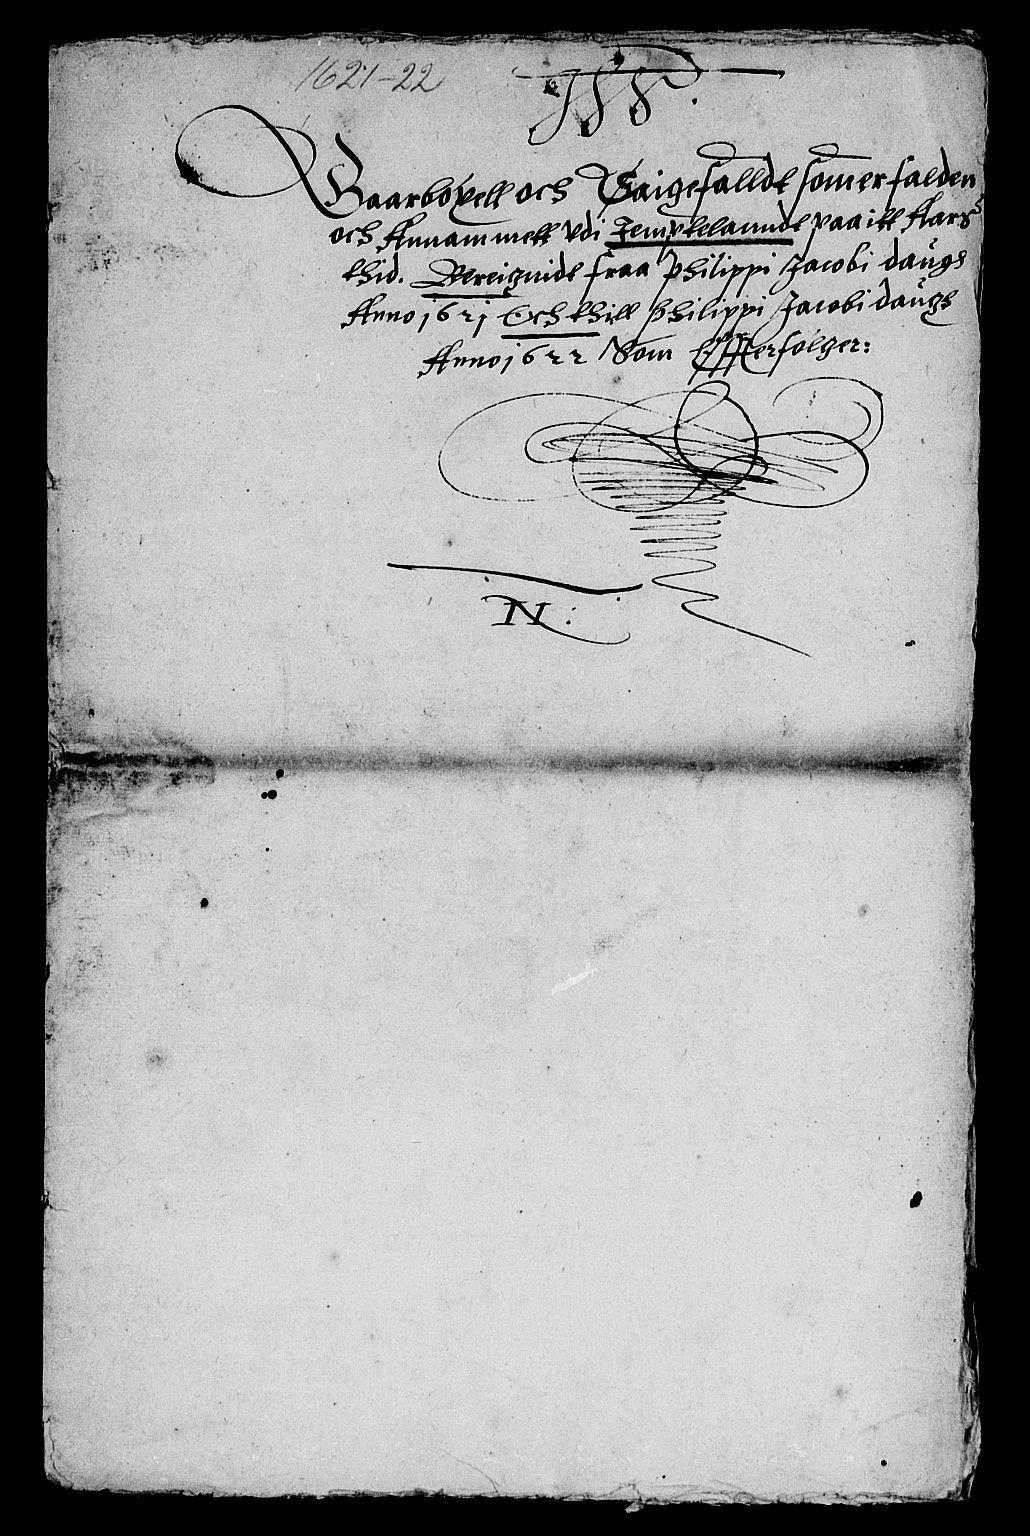 1621-22
Baarbøxell och Saigefalldt somer falden
och Annammett vdi Jempteland paa itt Aars
thid. Bereignidt fraa Philippi Jacobi daugs
Anno 1621 Och thill Philippi Jacobi daugs
Anno 1622 Som Effterfølger:
N: